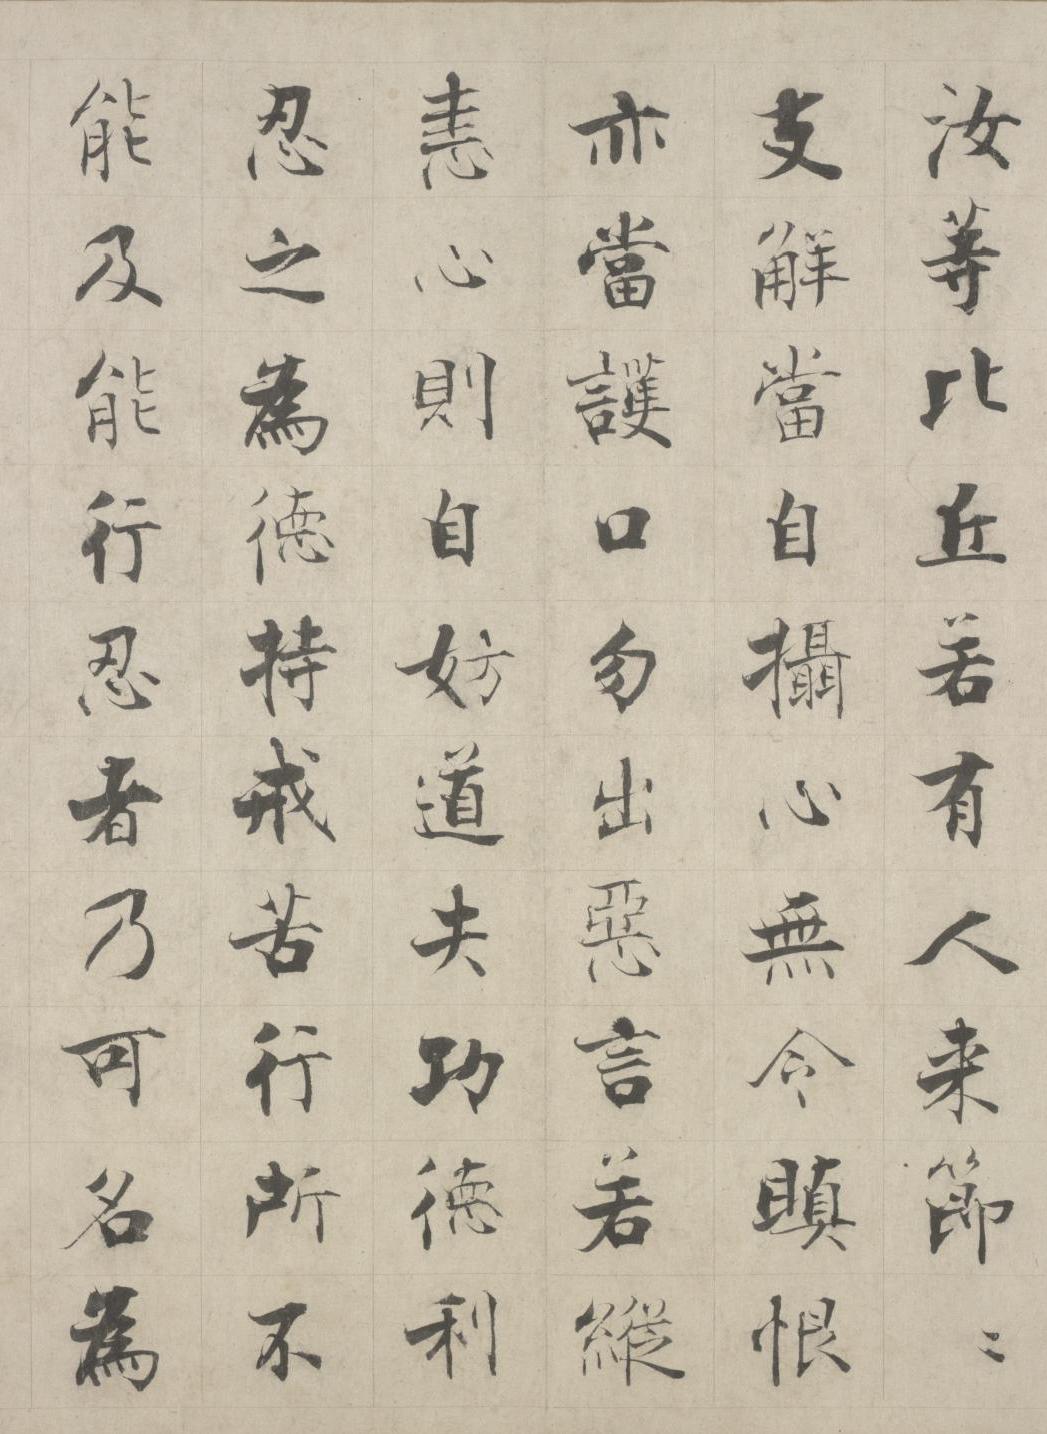 汝等比丘若有人来節〻
支解當自攝心無令瞋恨
亦當護口勿出惡言若縱
恚心則自妨道失功徳利
忍之為徳持戒苦行所不
能及能行忍者乃可名為